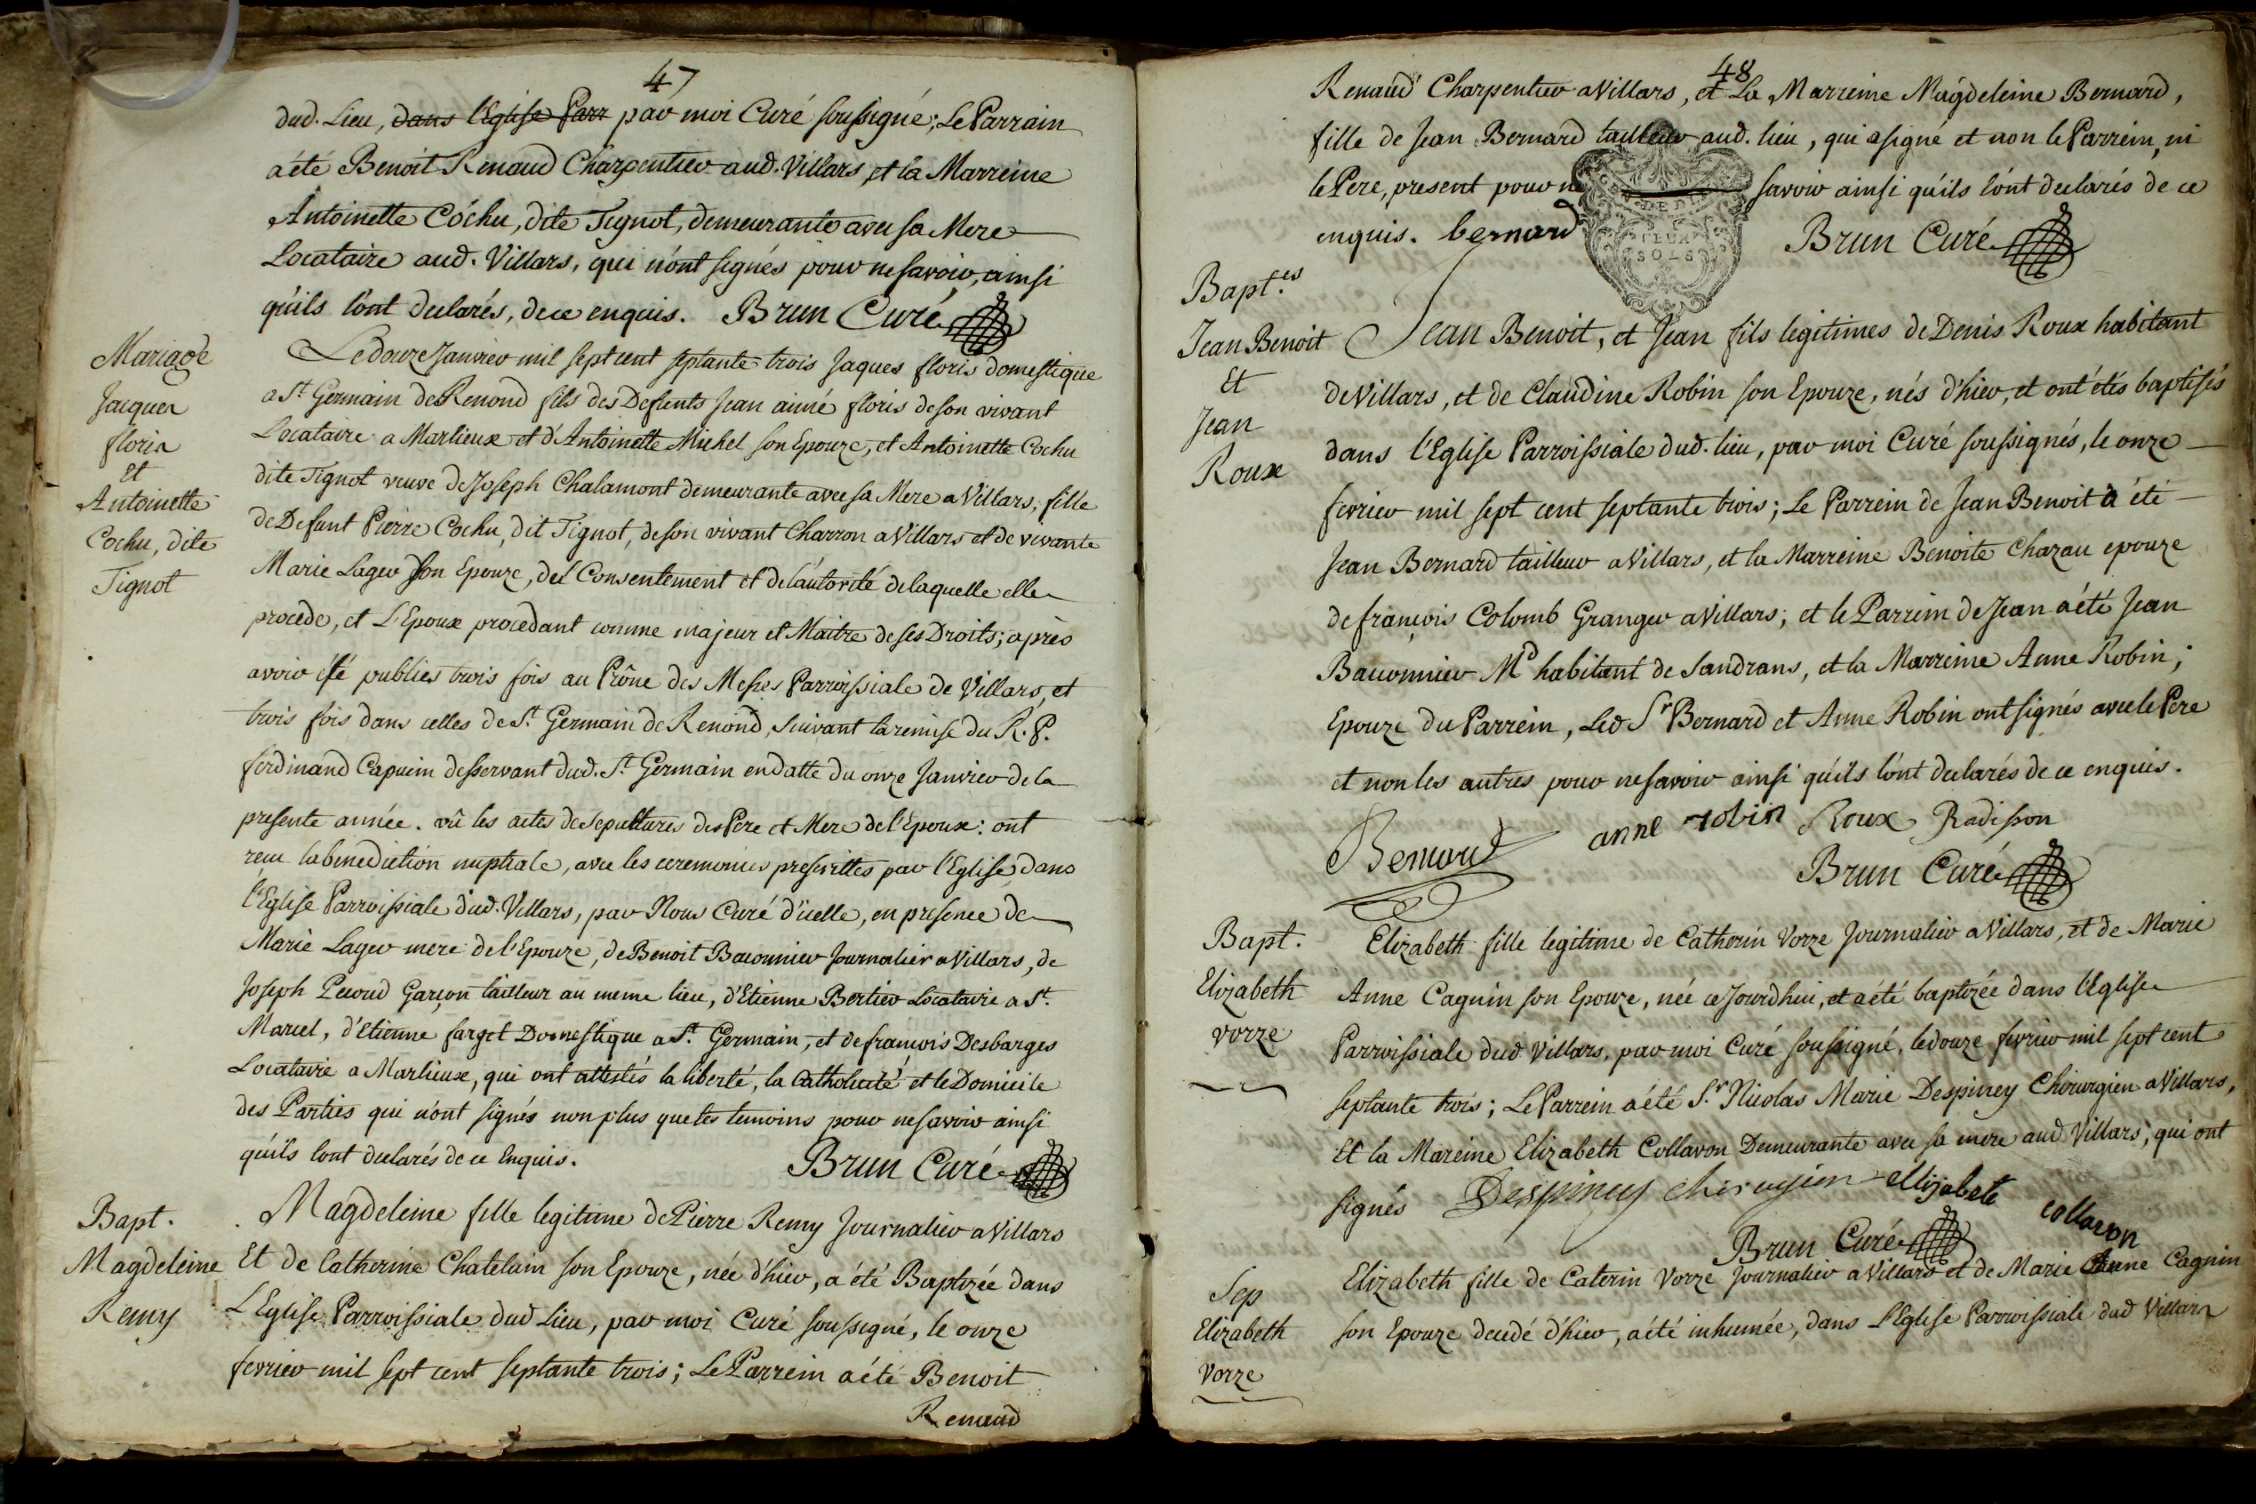 47
dud. Lieu, dans l'Eglise Parr par moi Curé soussigné; Le Parrain
a été Benoit Renaud Charpentier aud. Villars et la Marreine
Antoinette Cochu, dite Tignot, demeurante avec sa Mere
Locataire aud. Villars, qui n'ont signés pour ne savoir, ainsi
qu'ils l'ont declarés, de ce enquis. Brun Curé
Mariage
Jacques
floris
Et
Antoinette
Cochu, dite
Tignot
Le douze Janvier mil sept cent septante trois Jaques floris domestique
a St Germain de Renond fils des Defunts Jean ainné floris de son vivant
Locataire a Marlieux et d'Antoinette Michel son Epouze, et Antoinette Cochu
dite Tignot veuve de Joseph Chalamont demeurante avec sa Mere a Villars, fille
de Defunt Pierre Cochu, dit Tignot, de son vivant Charron a Villars et de vivante
Marie Lager son Epouze, du Consentement et de l'autorité de laquelle elle
procede, et L'Epoux procedant comme majeur et Maitre de ses Droits; après
avoir été publiés trois fois au Prône des Messes Parroissiale de Villars, et
trois fois dans celles de St Germain de Renond, suivant la remise du R. P.
ferdinand Capucin desservant dud. St Germain en datte du onze Janvier de la
presente année. vû les actes de sepultures des Pere et Mere de l'Epoux: ont
reçu la benediction nuptiale, avec les ceremonies prescrittes par l'Eglise, dans
l'Eglise Parroissiale dud. Villars, par Nous Curé d'icelle, en presence de
Marie Lager mere de l'Epouze, de Benoit Baconnier Journalier a Villars, de
Joseph Pecoud Garçon tailleur au meme lieu, d'Etienne Bertier Locataire a St.
Marcel, d'Etienne farget Domestique a St. Germain, et de francois Desbarges
Locataire a Marlieux, qui ont attestés la liberté, la Catholicité et le Domicile
des Parties qui n'ont signés non plus que les temoins pour ne savoir ainsi
qu'ils l'ont declarés de ce Enquis. Brun Curé
Bapt.
Magdeleine
Remy
Magdeleine fille legitime de Pierre Remy Journalier a Villars
Et de Catherine Chatelain son Epouze, née d'hier, a été Baptizée dans
L'Eglise Parroissiale dud Lieu, par moi Curé soussigné, le onze
fevrier mil sept cent septante trois; Le Parrein a été Benoit
Renaud
48
Renaud Charpentier a Villars, et La Marreine Magdeleine Bernard,
fille de Jean Bernard tailleur aud. lieu, qui a signé et non le Parrein, ni
le Pere, present pour ne savoir ainsi qu'ils l'ont declarés de ce
enquis. bernard Brun Curé
DEUX
SOLS
Bapt.es
Jean Benoit
Et
Jean
Roux
Jean Benoit, et Jean fils legitimes de Denis Roux habitant
de Villars, et de Claudine Robin son Epouze, nés d'hier, et ont étés baptisés
dans l'Eglise Parroissiale dud. lieu, par moi Curé soussignés, le onze
fevrier mil sept cent septante trois; Le Parrein de Jean Benoit a été
Jean Bernard tailleur a Villars, et la Marreine Benoite Chazau epouze
de françois Colomb Granger a Villars; et le Parrein de Jean a été Jean
Baconnier Md habitant de Sandrans, et la Marreine Anne Robin,
Epouze du Parrein, Led Sr Bernard et Anne Robin ont signés avec le Pere
et non les autres pour ne savoir ainsi qu'ils l'ont declarés de ce enquis.
Bernard anne robin Roux Radisson
Brun Curé
Bapt.
Elizabeth
vorze
Elizabeth fille legitime de Catherin Vorze Journalier a Villars, et de Marie
Anne Cagnin son Epouze, née ce Jourd'hui, et a été baptizée dans l'Eglise
Parroissiale dud Villars, par moi Curé soussigné, le douze fevrier mil sept cent
septante trois; Le Parrein a été Sr Nicolas Marie Despiney Chirurgien a Villars,
Et la Mareine Elizabeth Collavon Demeurante avec sa mere aud Villars, qui ont
signés Despiney chirugien Ellijabete collavon
Brun Curé
Sep
Elizabeth
Vorze
Elizabeth fille de Caterin Vorze Journalier a Villars et de Marie Anne Cagnin
son Epouze decedé d'hier, a été inhumée, dans l'Eglise Parroissiale dud Villars